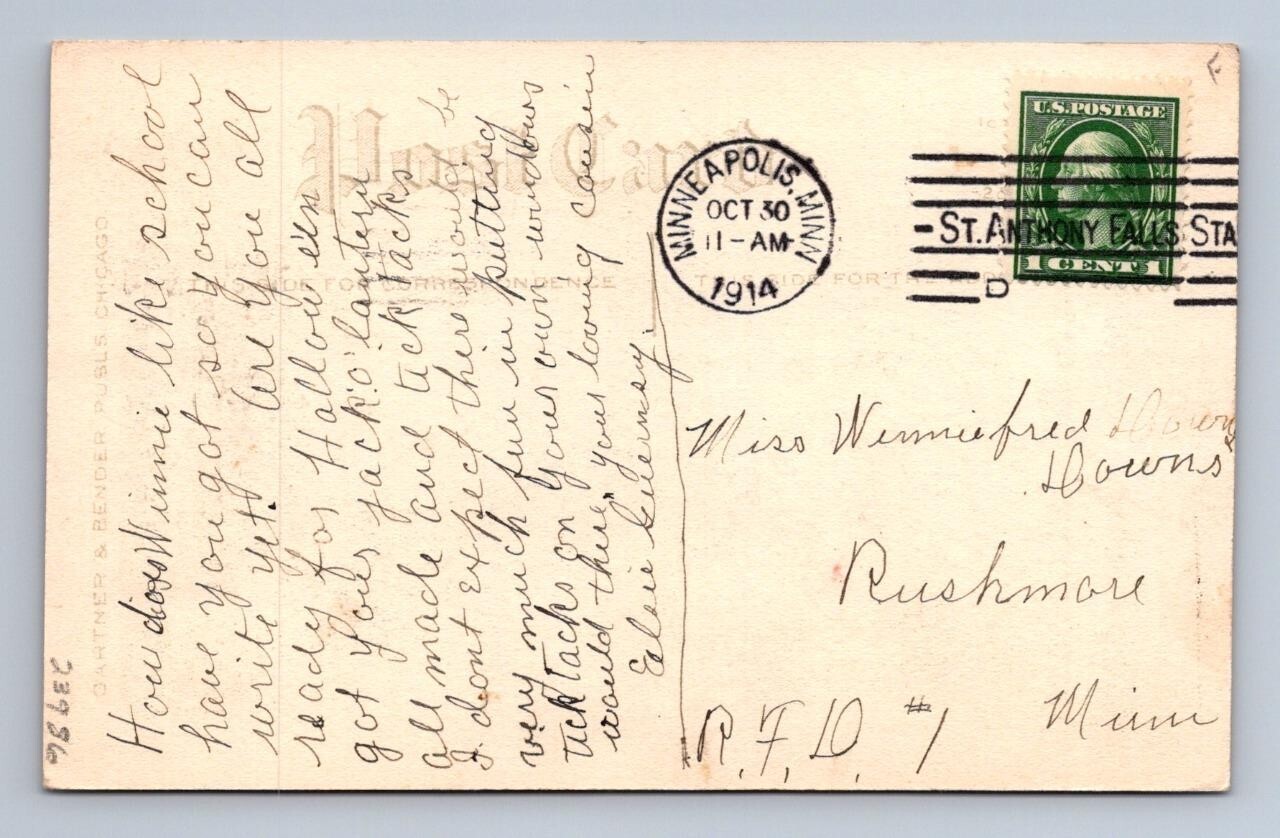 How does Winnie like school
have you got so you can
write yet. Are you all
ready for Hallow'een
got your jack'o'lantern
all made and tick tacks
I dont expect there would be
very much fun in putting
tick tacks on your own windows
would there, your loving cousin
Elsie Guernsey.
Post Card
THIS SIDE FOR CORRESPONDENCE
THIS SIDE FOR THE AD
GARTNER & BENDER PUBLS CHICAGO
MINNEAPOLIS, MINN
OCT 30
11-AM
1914
- ST. ANTHONY FALLS STA
D
U.S. POSTAGE
1 CENT 1
Miss Winniefred Downs
Downs
Rushmore
Minn
R.F.D. #1